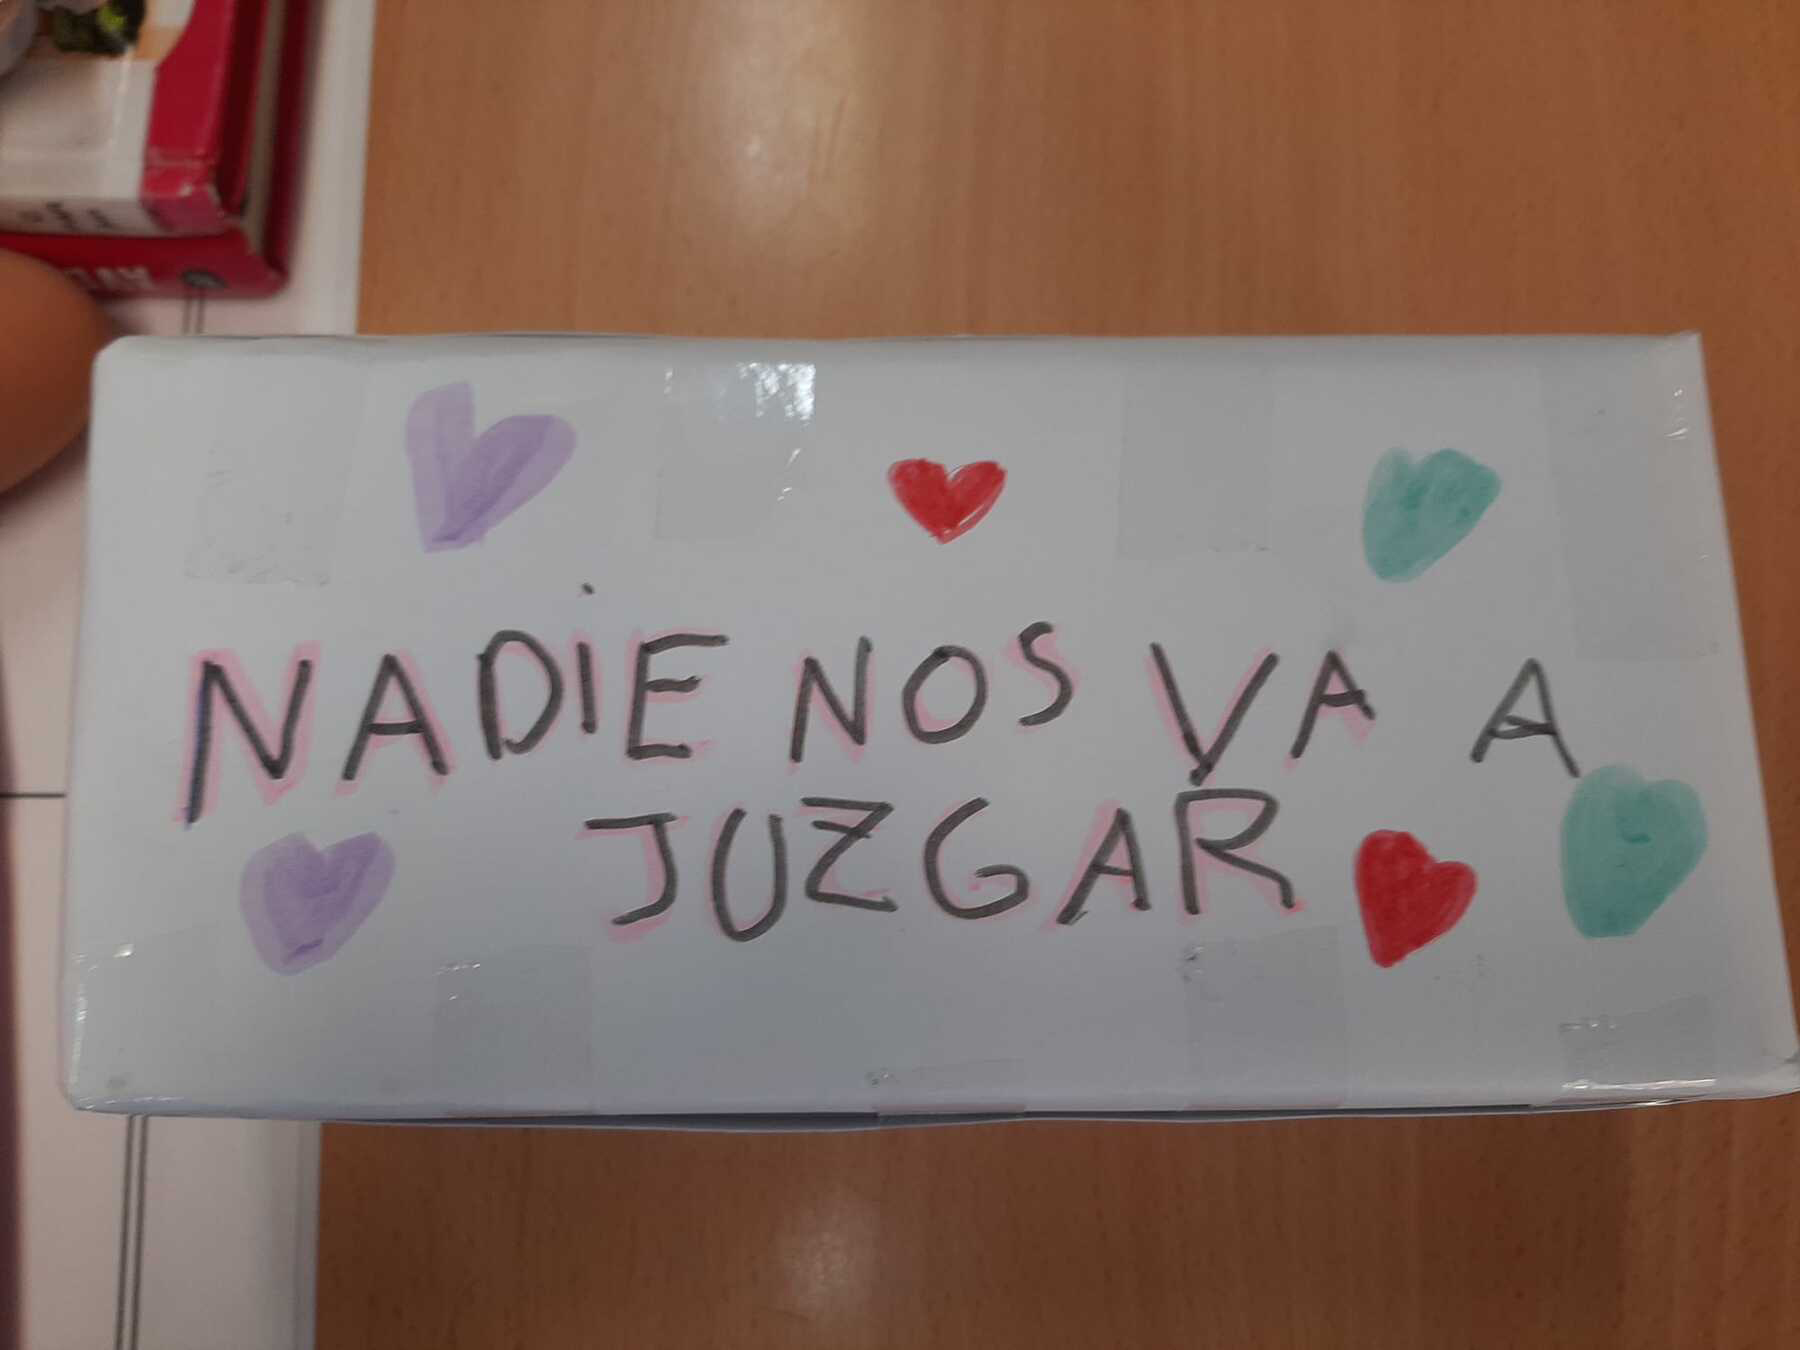 NADIE NOS VA A
JUZGAR